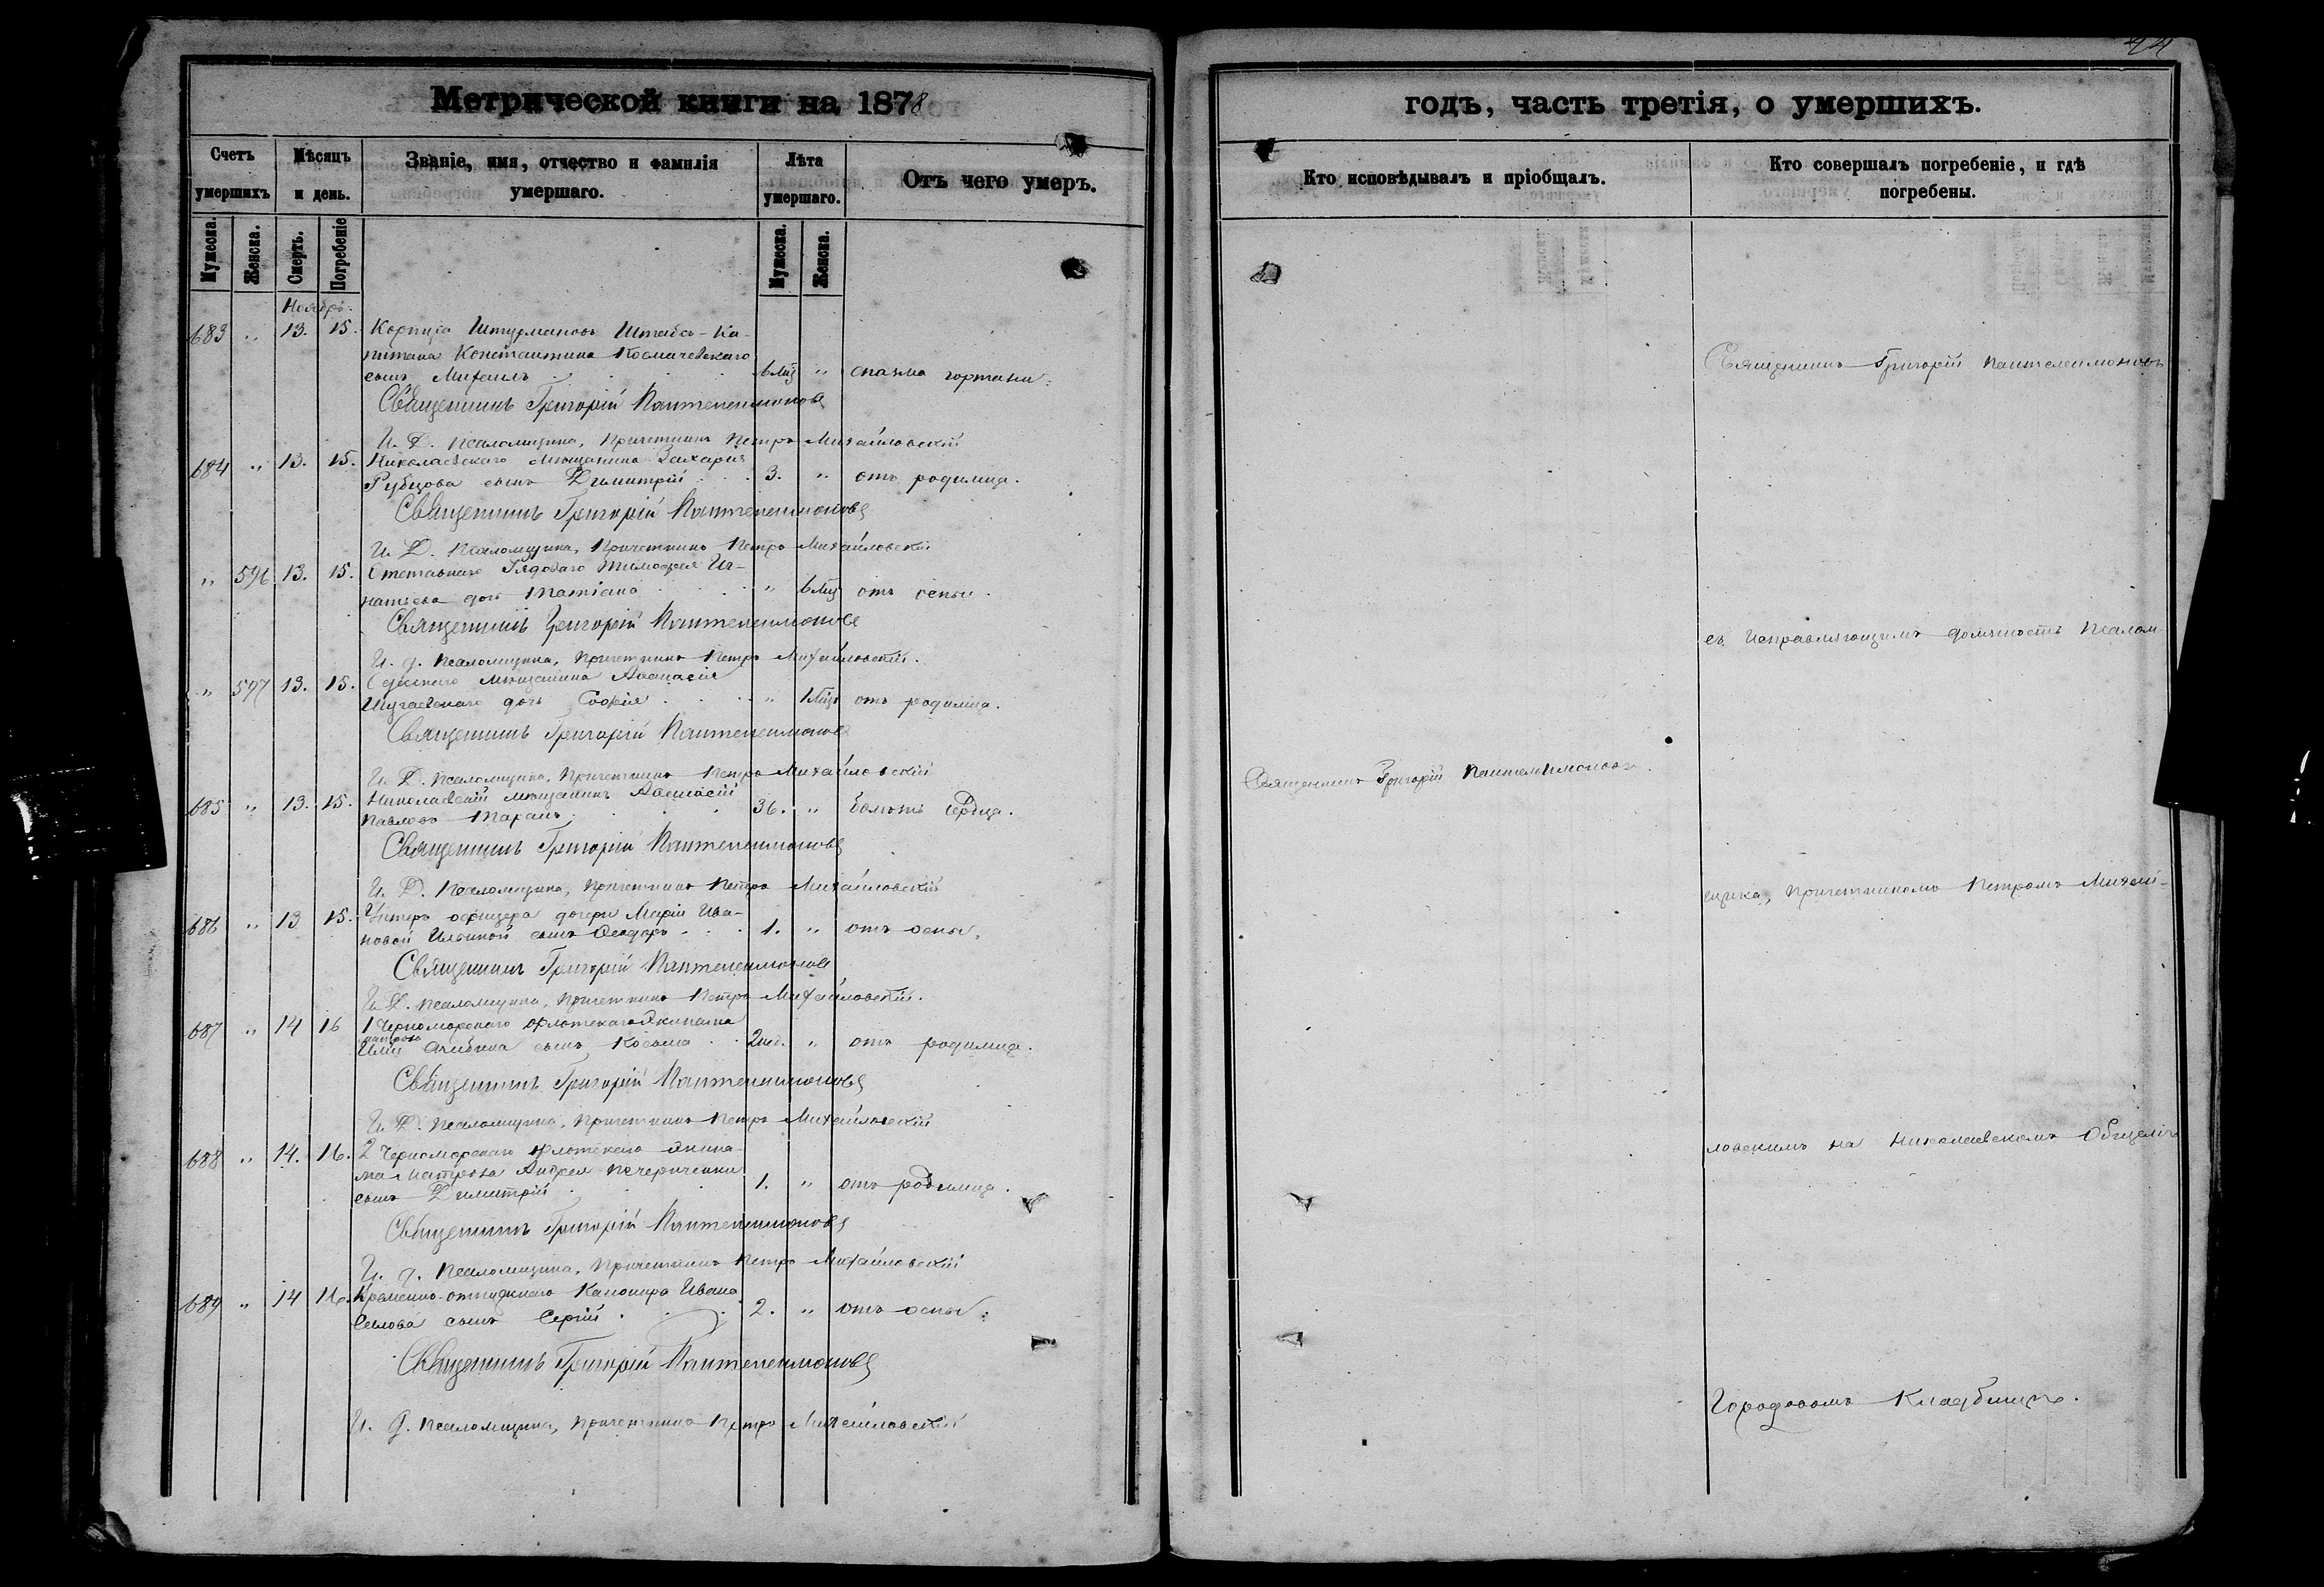 Метрической книги на 1878
Счетъ умершихъ
Мѣсяцъ и день.
Званіе, имя, отчество и фамилія умершаго.
Лѣта умершаго.
Отъ чего умеръ.
Мужеска. Женска. Смерть. Погребеніе Мужеска. Женска.
Ноябрь.
683 " 13. 15. Корпуса Штурмановъ Штабсъ-Ка-
питана Константина
сынъ Михаилъ 6 Мц " спазма гортани.
Священникъ Григорій Пантелеимоновъ
И. Д. Псаломщика, Причетникъ Петръ Михайловскій
684 " 13. 15. Николаевскаго мѣщанина Захарія
Рубцова сынъ Димитрій 3. " отъ родимца.
Священникъ Григорій Пантелеимоновъ
И. Д. Псаломщика, Причетникъ Петръ Михайловскій
" 596 13. 15. Отставнаго Рядоваго Тимофея Иг-
натьева дочь Татіана " 6 Мц отъ оспы.
Священникъ Григорій Пантелеимоновъ
И. д. Псаломщика, Причетникъ Петръ Михайловскій.
" 597 13. 15. Одесскаго мѣщанина Аѳанасія
дочь Софія " 1 Мцъ отъ родимца.
Священникъ Григорій Пантелеимоновъ
И. Д. Псаломщика, Причетникъ Петръ Михайловскій
685 " 13. 15. Николаевскій мѣщанинъ Аѳанасій
Павловъ Таранъ 36. " болѣзнь сердца.
Священникъ Григорій Пантелеимоновъ
И. Д. Псаломщика, Причетникъ Петръ Михайловскій
686 " 13 15. Унтеръ офицера дочери Маріи Ива-
новой Ильиной сынъ Ѳеодоръ 1. " отъ оспы.
Священникъ Григорій Пантелеимоновъ
И. Д. Псаломщика, Причетникъ Петръ Михайловскій.
687 " 14 16 1 Черноморскаго флотскаго Экипажа
матроса
сынъ Косьма 2 нед. " отъ родимца.
Священникъ Григорій Пантелеимоновъ
И. Д. Псаломщика, Причетникъ Петръ Михайловскій
688 " 14. 16. 2 Черноморскаго флотскаго Экипа-
жа Матроса Андрея
сынъ Димитрій 1. " отъ родимца.
Священникъ Григорій Пантелеимоновъ
И. д. Псаломщика, Причетникъ Петръ Михайловскій
689 " 14 16. Временно-отпускнаго Канонира Ивана
сынъ Сергій 2. " отъ оспы.
Священникъ Григорій Пантелеимоновъ
И. д. Псаломщика, Причетникъ Петръ Михайловскій
годъ, часть третія, о умершихъ.
Кто исповѣдывалъ и пріобщалъ.
Кто совершалъ погребеніе, и гдѣ погребены.
Священникъ Григорій Пантелеимоновъ
съ Исправляющимъ должность Псалом-
Священникъ Григорій Пантелеимоновъ.
щика, Причетникомъ Петромъ Михай-
ловскимъ на Николаевскомъ Общемъ
Городовомъ Кладбищѣ.